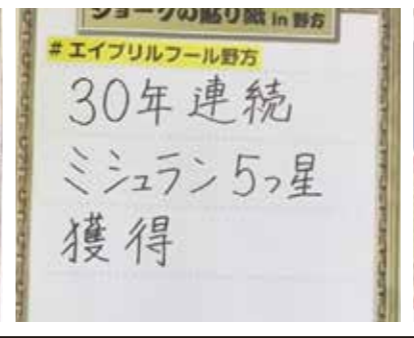 ジョークの貼り紙 in 野方
# エイプリルフール野方
30年連続
ミシュラン5っ星
獲得